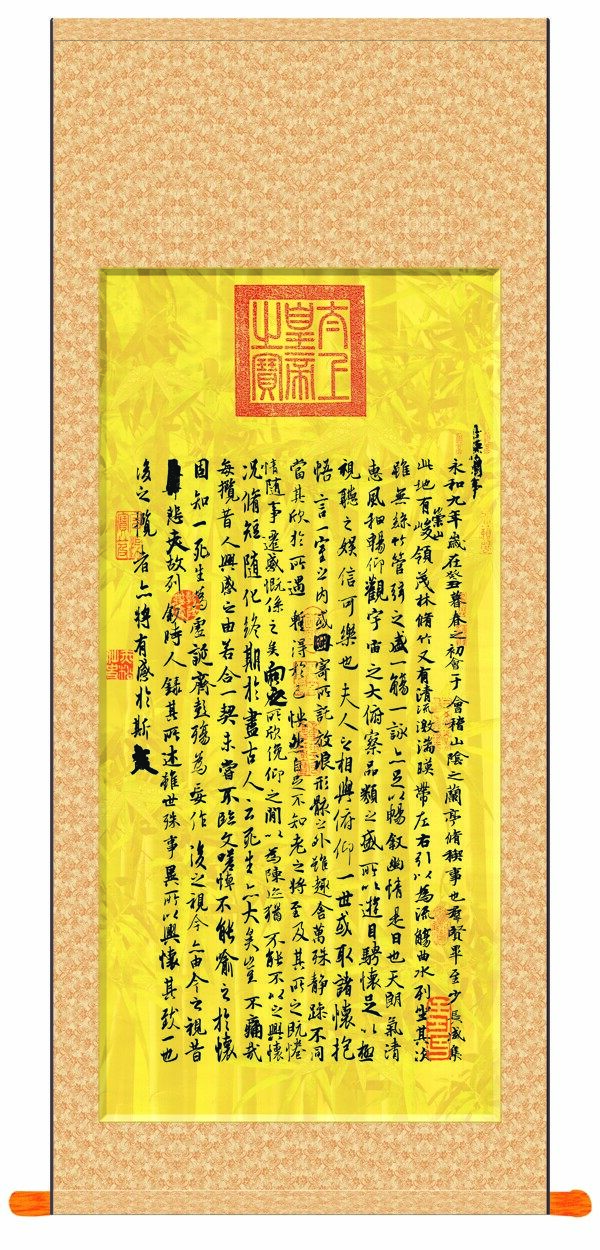 太上
皇帝
之寶
永和九年歲在癸丑暮春之初會于會稽山陰之蘭亭脩禊事也羣賢畢至少長咸集
此地有崇山峻領茂林脩竹又有清流激湍暎帶左右引以為流觴曲水列坐其次
雖無絲竹管弦之盛一觴一詠亦足以暢敘幽情是日也天朗氣清
惠風和暢仰觀宇宙之大俯察品類之盛所以遊目騁懷足以極
視聽之娛信可樂也夫人之相與俯仰一世或取諸懷抱
悟言一室之內或因寄所託放浪形骸之外雖趣舍萬殊靜躁不同
當其欣於所遇暫得於己怏然自足不知老之將至及其所之既惓
情隨事遷感慨係之矣向之所欣俛仰之閒以為陳迹猶不能不以之興懷
況脩短隨化終期於盡古人云死生亦大矣豈不痛哉
每攬昔人興感之由若合一契未嘗不臨文嗟悼不能喻之於懷
固知一死生為虛誕齊彭殤為妄作後之視今亦由今之視昔
悲夫故列敘時人錄其所述雖世殊事異所以興懷其致一也
後之攬者亦將有感於斯文